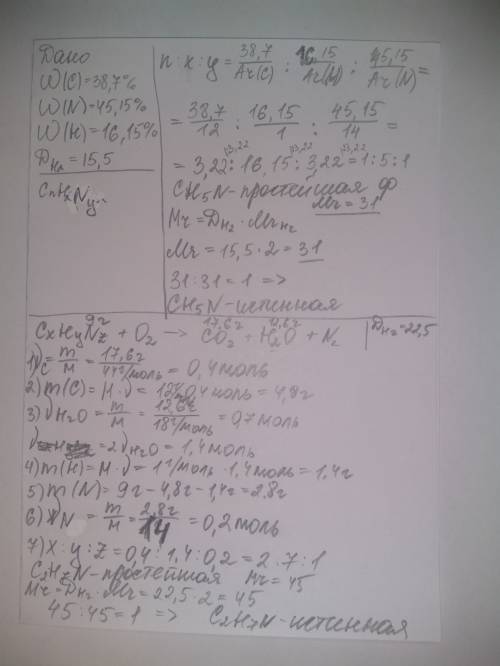 Дано
W(C)=38,7%
W(N)=45,15%
W(H)=16,15%
D_H₂=15,5
CnHxNy
n:x:y = 38,7/Ar(C) : 16,15/Ar(H) : 45,15/Ar(N) =
= 38,7/12 : 16,15/1 : 45,15/14 =
= 3,22 : 16,15 : 3,22 = 1:5:1
CH₅N - простейшая ф
Mr = 31
Mr = D_H₂ · Mr H₂
Mr = 15,5 · 2 = 31
31:31 = 1 =>
CH₅N - истенная
9г 17,6г 12,6г
CxHyNz + O₂ → CO₂ + H₂O + N₂ D_H₂=22,5
1) νC = m/M = 17,6г/44г/моль = 0,4моль
2) m(C) = M·ν = 12·0,4моль = 4,8г
3) νH₂O = m/M = 12,6г/18г/моль = 0,7моль
= 2νH₂O = 1,4моль
4) m(H) = M·ν = 1г/моль · 1,4моль = 1,4г
5) m(N) = 9г - 4,8г - 1,4г = 2,8г
6) νN = m/M = 2,8г/14 = 0,2моль
7) X:y:Z = 0,4:1,4:0,2 = 2:7:1
C₂H₇N - простейшая Mr = 45
Mr = D_H₂ · Mr = 22,5 · 2 = 45
45:45 = 1 => C₂H₇N - истенная